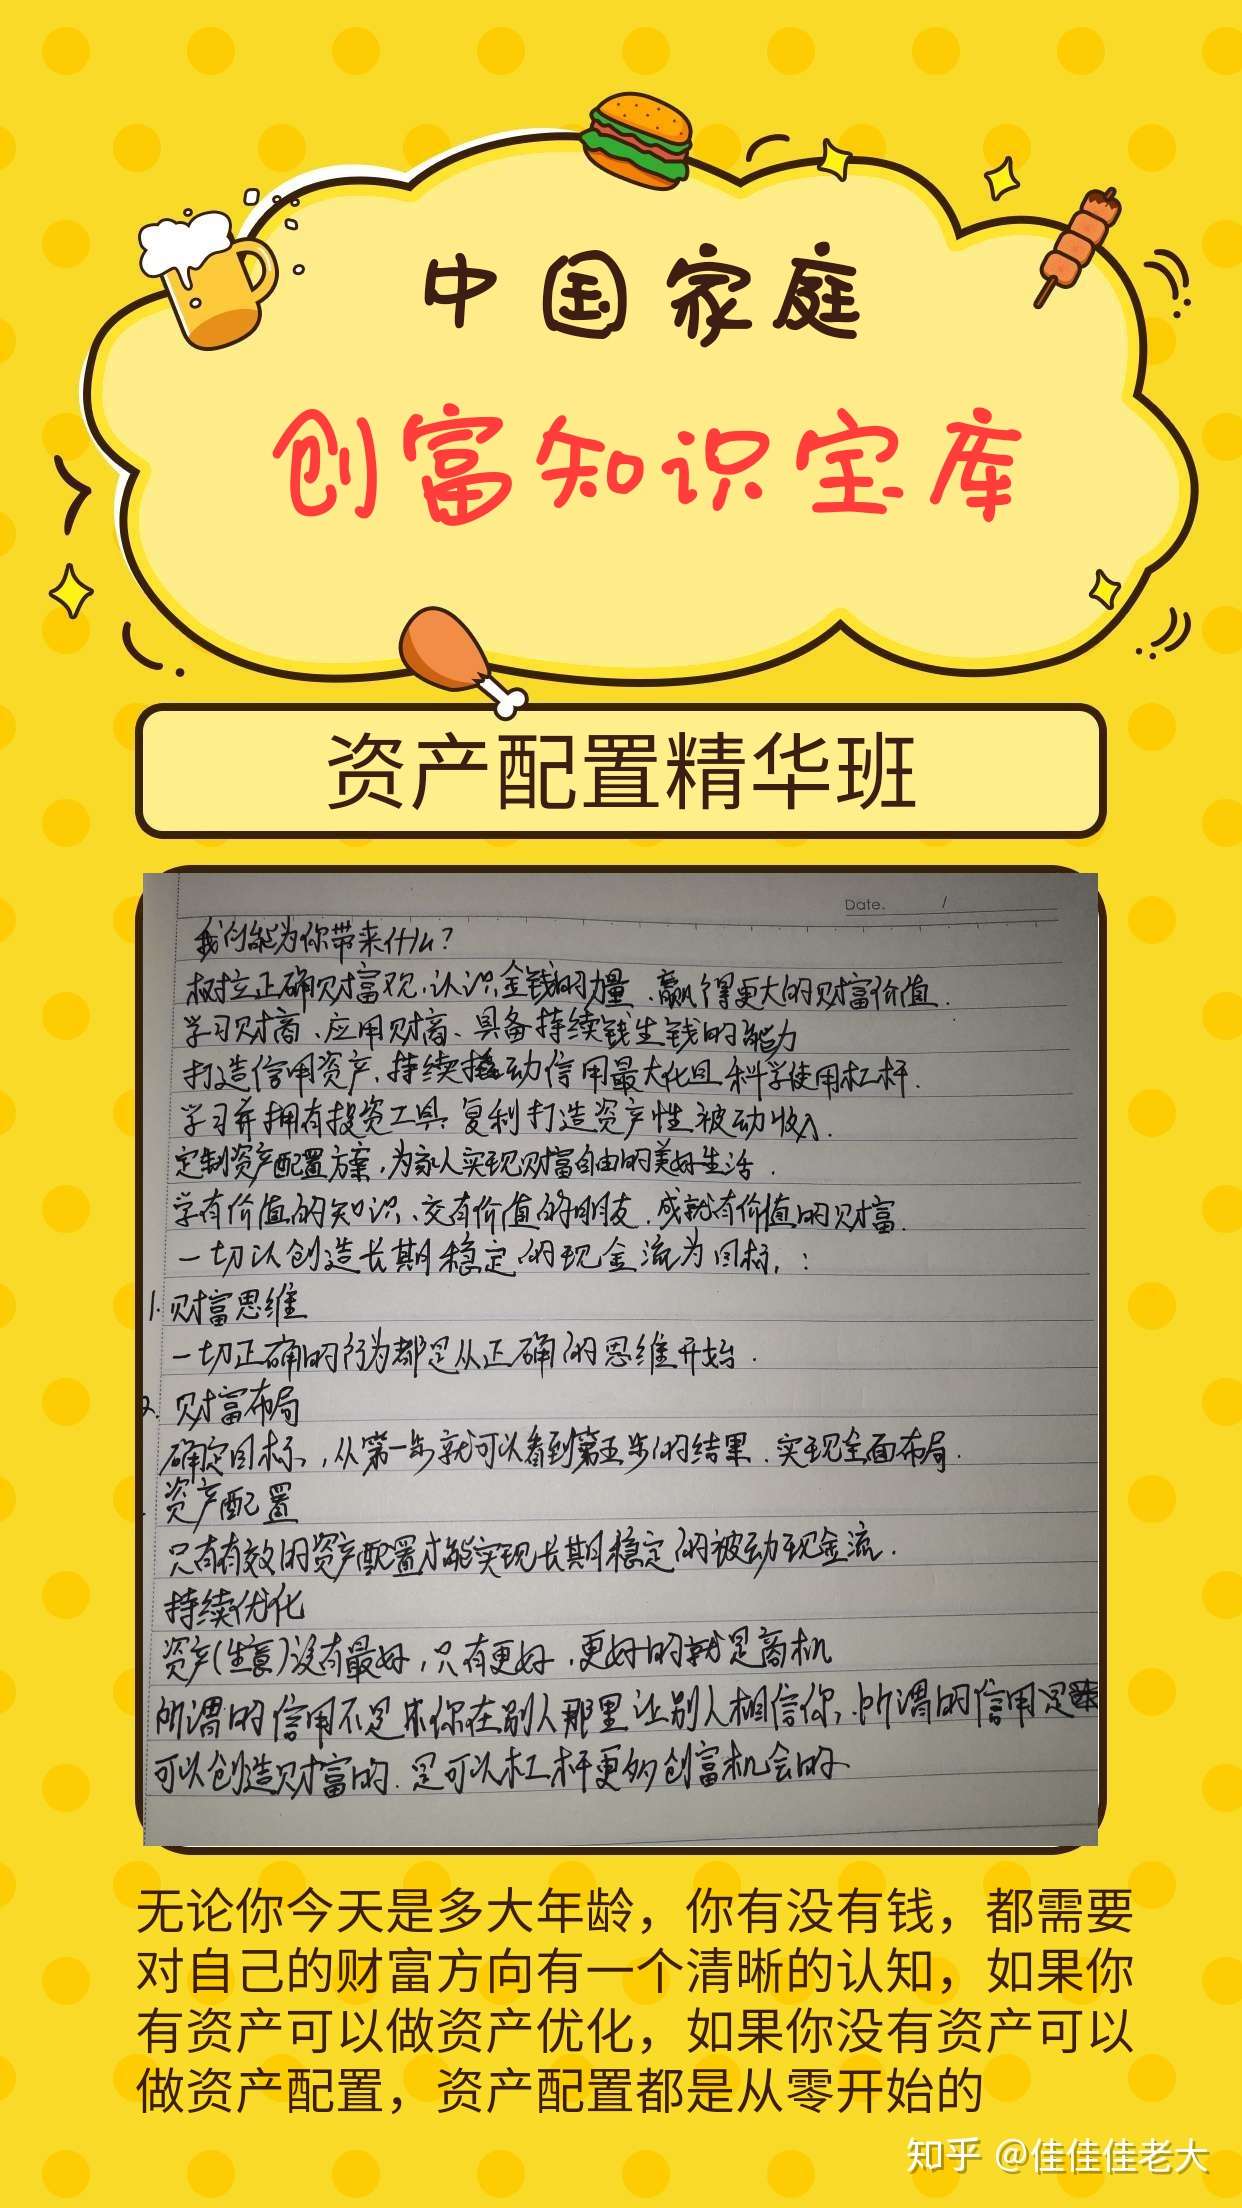 中国家庭
创富知识宝库
资产配置精华班
Date. /
我们能为你带来什么?
树立正确财富观,认识金钱的力量、赢得更大的财富价值.
学习财商、应用财商、具备持续钱生钱的能力
打造信用资产,持续撬动信用最大化且科学使用杠杆.
学习并拥有投资工具 复利打造资产性被动收入.
定制资产配置方案,为家人实现财富自由的美好生活.
学有价值的知识、交有价值的朋友,成就有价值的财富.
一切以创造长期稳定的现金流为目标.:
1. 财富思维
一切正确的行为都是从正确的思维开始.
2. 财富布局
确定目标,从第一步就可以看到第五步的结果.实现全面布局.
资产配置
只有有效的资产配置才能实现长期稳定的被动现金流.
持续优化
资产(生意)没有最好,只有更好,更好的就是商机
所谓的信用不是你在别人那里让别人相信你,所谓的信用是
可以创造财富的.是可以杠杆更多创富机会的
无论你今天是多大年龄，你有没有钱，都需要
对自己的财富方向有一个清晰的认知，如果你
有资产可以做资产优化，如果你没有资产可以
做资产配置，资产配置都是从零开始的
知乎 @佳佳佳老大